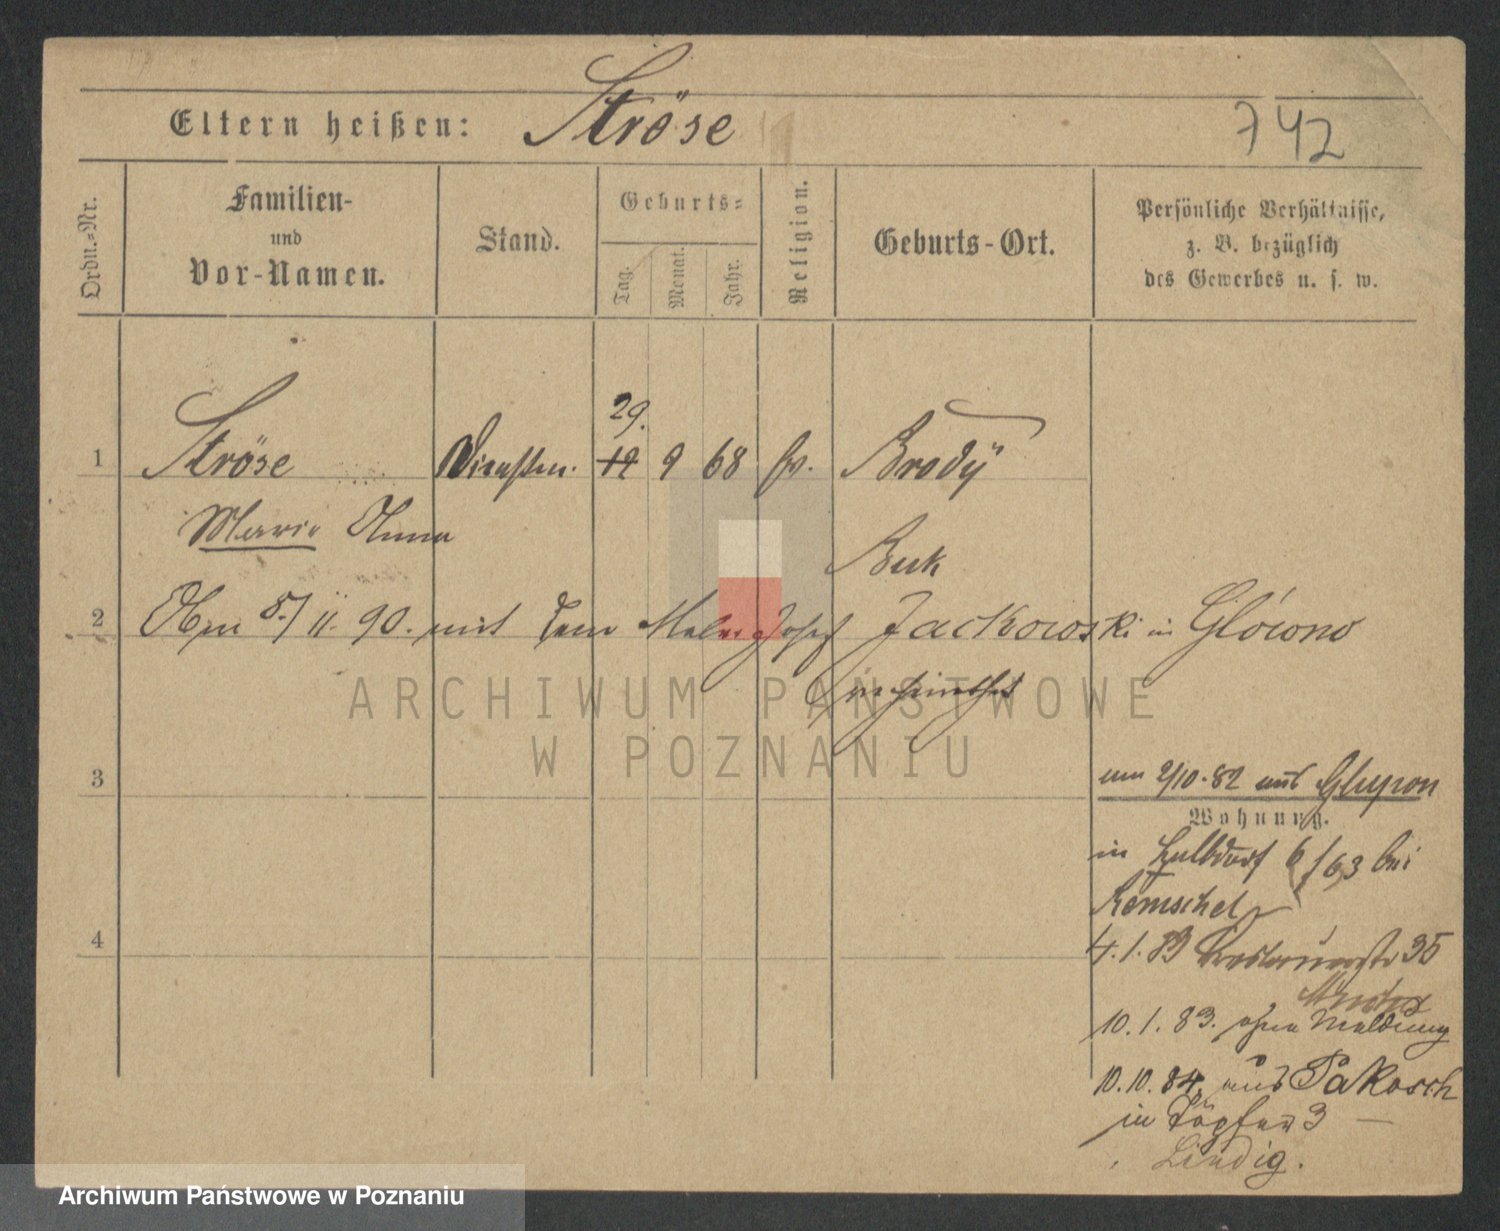 Eltern heißen: Ströse
742
Ordn.-Nr.
Familien-
und
Vor-Namen.
Stand.
Geburts-
Tag.
Monat.
Jahr.
Religion.
Geburts-Ort.
Persönliche Verhältnisse,
z. B. bezüglich
des Gewerbes u. s. w.
29.
1 Ströse Dienstm. 19 9 68 Brody
Marie Anna
Buk
2 Am 5/11. 90. mit dem Maler Josef Jackowski in Główno
verheirathet
ARCHIWUM PAŃSTWOWE
W POZNANIU
3
um 2/10. 82 aus Glupon
Wohnung.
in 6/63 bei
Remschel
4
4. 1. 83 35
10. 1. 83. ohne Meldung
10. 10. 84. aus Pakosch
in Töpfer 3
Lindig.
Archiwum Państwowe w Poznaniu